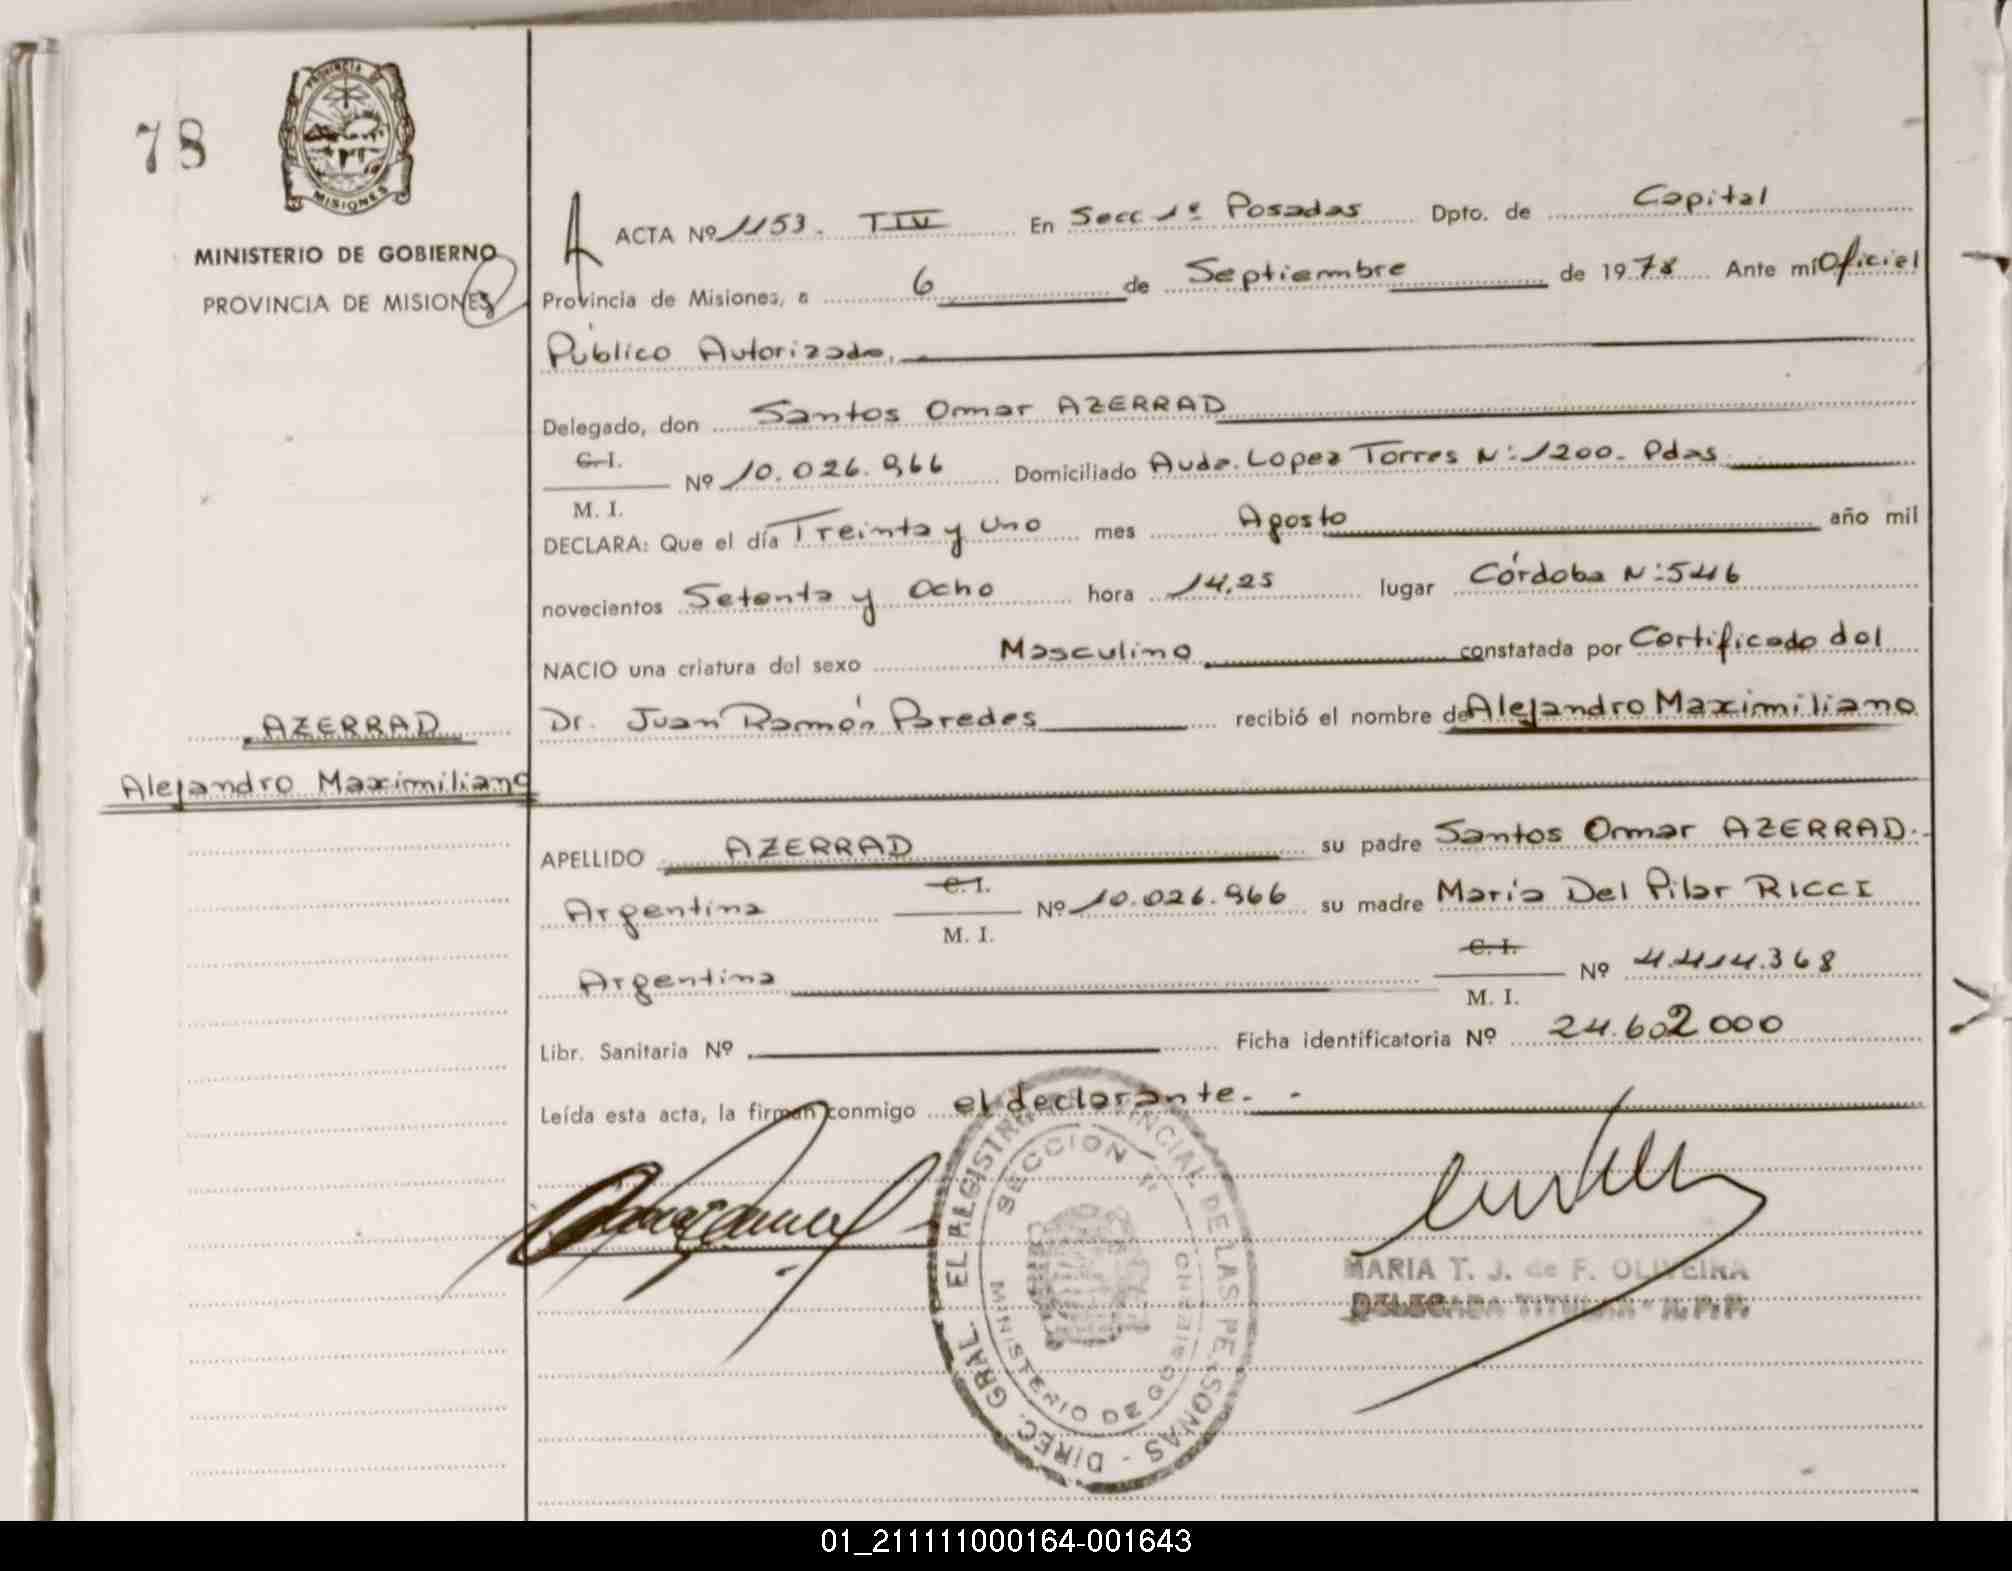 78
PROVINCIA DE
MISIONES
MINISTERIO DE GOBIERNO
PROVINCIA DE MISIONES
ACTA Nº 1153. TIV En Secc 1ª Posadas Dpto. de Capital
Provincia de Misiones, a 6 de Septiembre de 1978 Ante mi Oficial
Público Autorizado.
Delegado, don Santos Omar AZERRAD
C. I.
Nº 10.026.966 Domiciliado Avda. Lopez Torres Nº 1200. Pdas
M. I.
DECLARA: Que el día Treinta y Uno mes Agosto año mil
novecientos Setenta y Ocho hora 14,25 lugar Córdoba Nº 546
NACIO una criatura del sexo Masculino constatada por Certificado del
AZERRAD
Dr. Juan Ramón Paredes recibió el nombre de Alejandro Maximiliano
Alejandro Maximiliano
APELLIDO AZERRAD su padre Santos Omar AZERRAD.
Argentina C. I. Nº 10.026.966 su madre María Del Pilar RICCI
M. I.
Argentina C. I. Nº 4.414.368
M. I.
Libr. Sanitaria Nº Ficha identificatoria Nº 24.602000
Leída esta acta, la firman conmigo el declarante. -
DIREC. GRAL. EL REGISTRO PROVINCIAL DE LAS PERSONAS -
SECCION 1ª
MINISTERIO DE GOBIERNO
MARIA T. J. de F. OLIVEIRA
DELEGADA TITULAR - R. P. P.
01_211111000164-001643